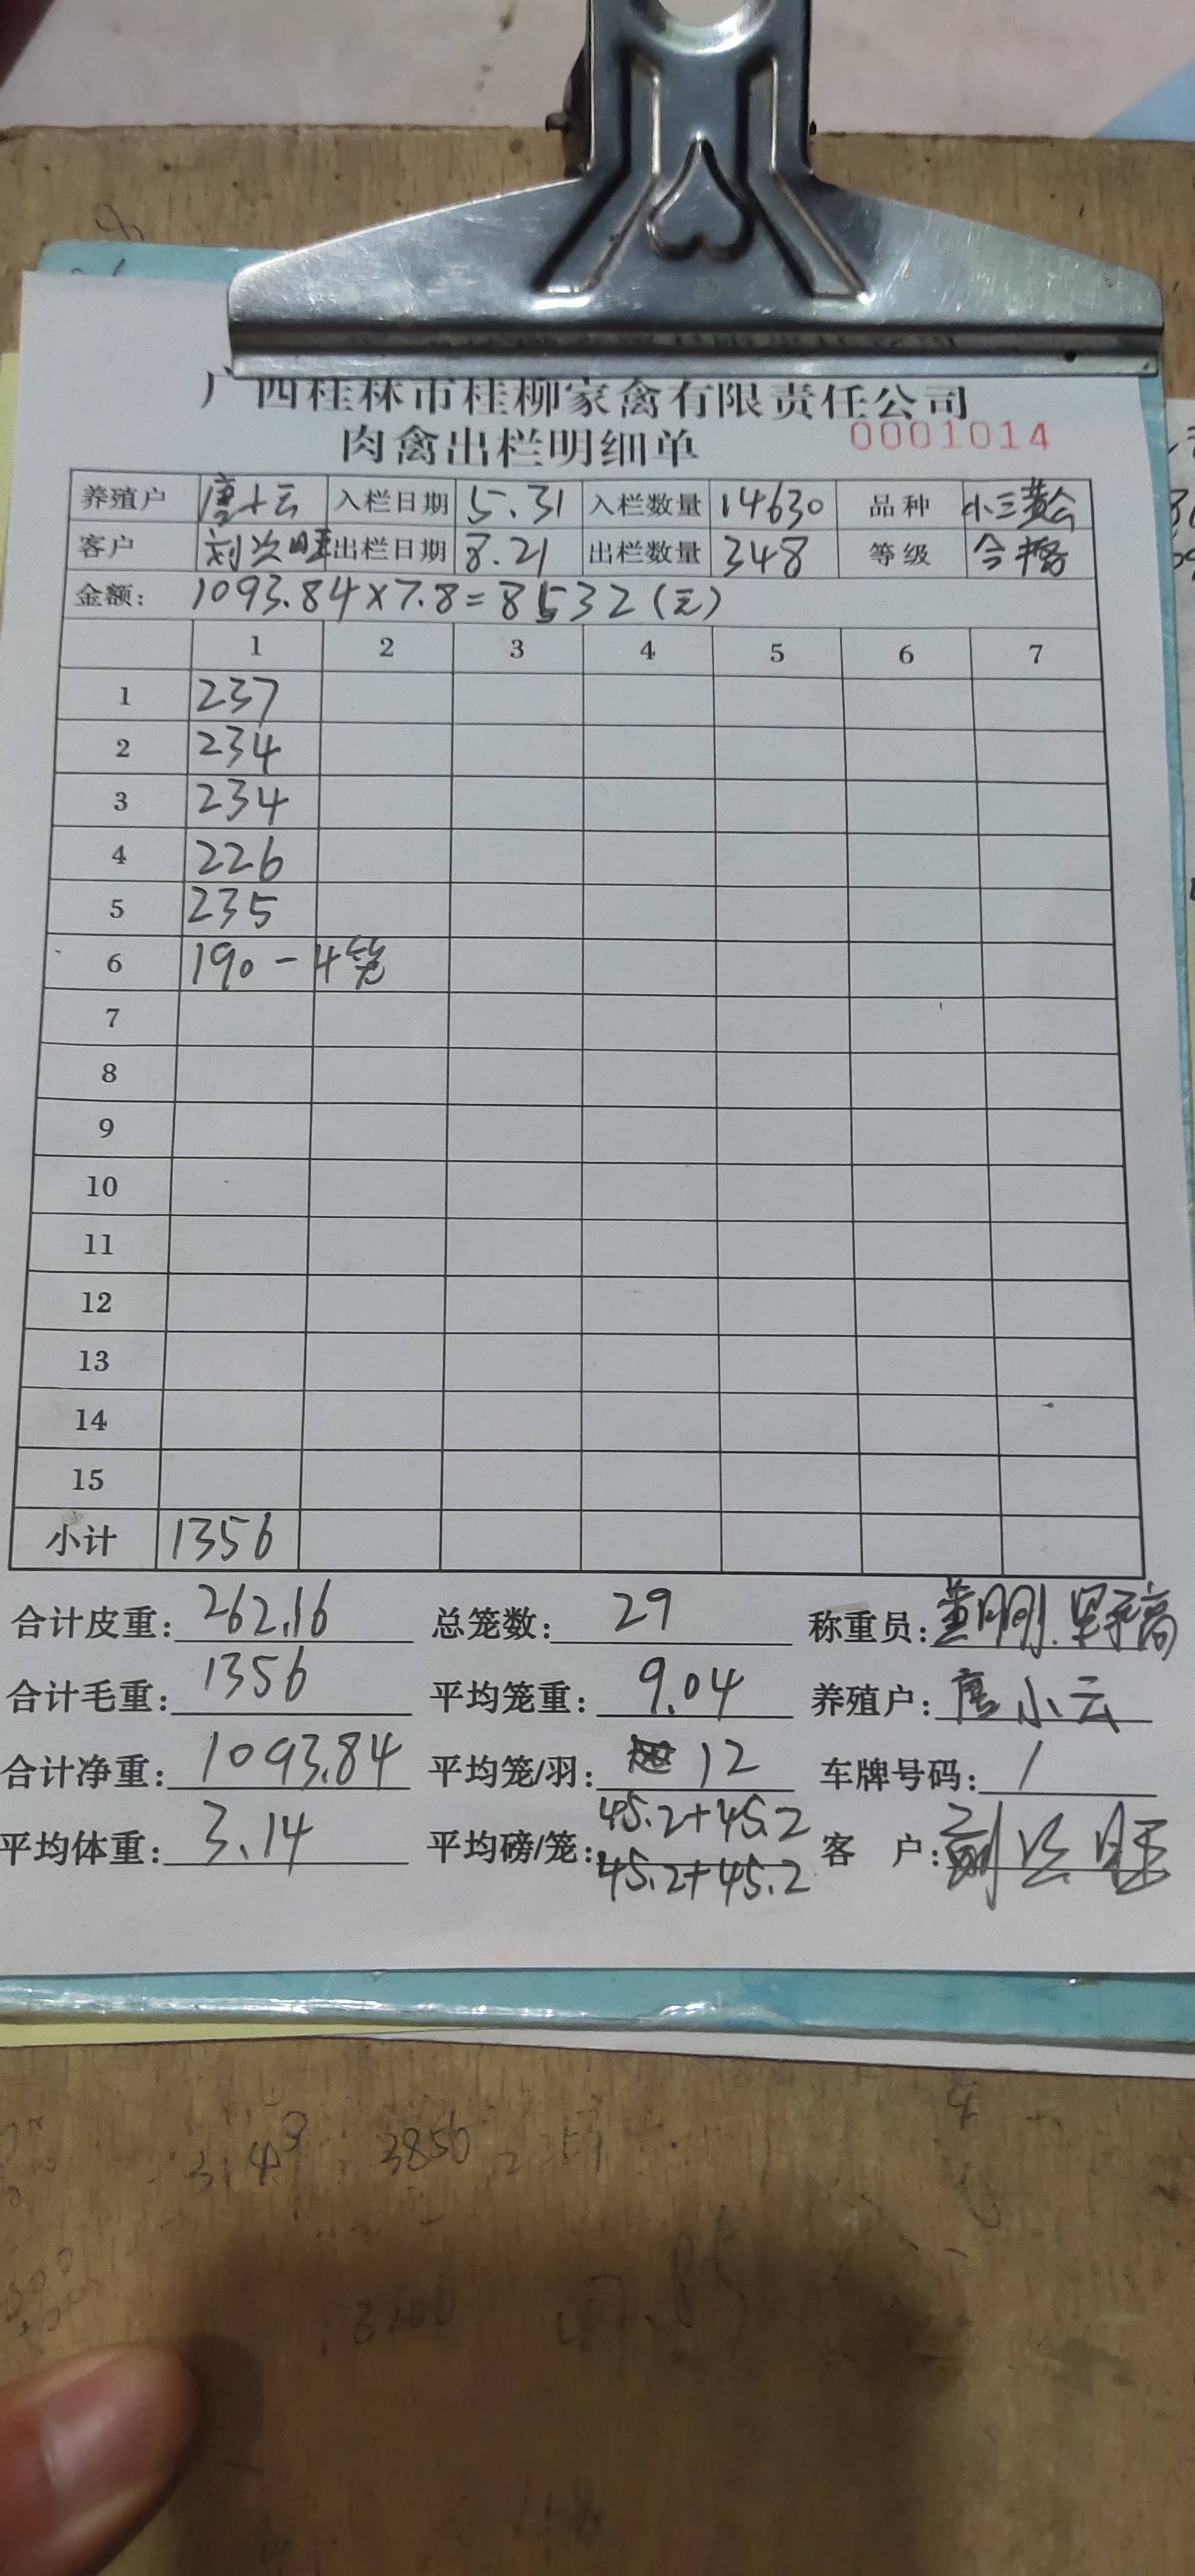 广西桂林市桂柳家禽有限责任公司
肉禽出栏明细单 0001014
养殖户 唐小云 入栏日期 5.31 入栏数量 14630 品种 小三黄公
客户 出栏日期 8.21 出栏数量 348 等级 合格
金额: 1093.84×7.8=8532(元)
1 2 3 4 5 6 7
1 237
2 234
3 234
4 226
5 235
6 190-4笼
7
8
9
10
11
12
13
14
15
小计 1356
合计皮重: 262.16 总笼数: 29 称重员:
合计毛重: 1356 平均笼重: 9.04 养殖户: 唐小云
合计净重: 1093.84 平均笼/羽: 12 车牌号码: /
平均体重: 3.14 平均磅/笼: 45.2+45.2 客 户:
45.2+45.2